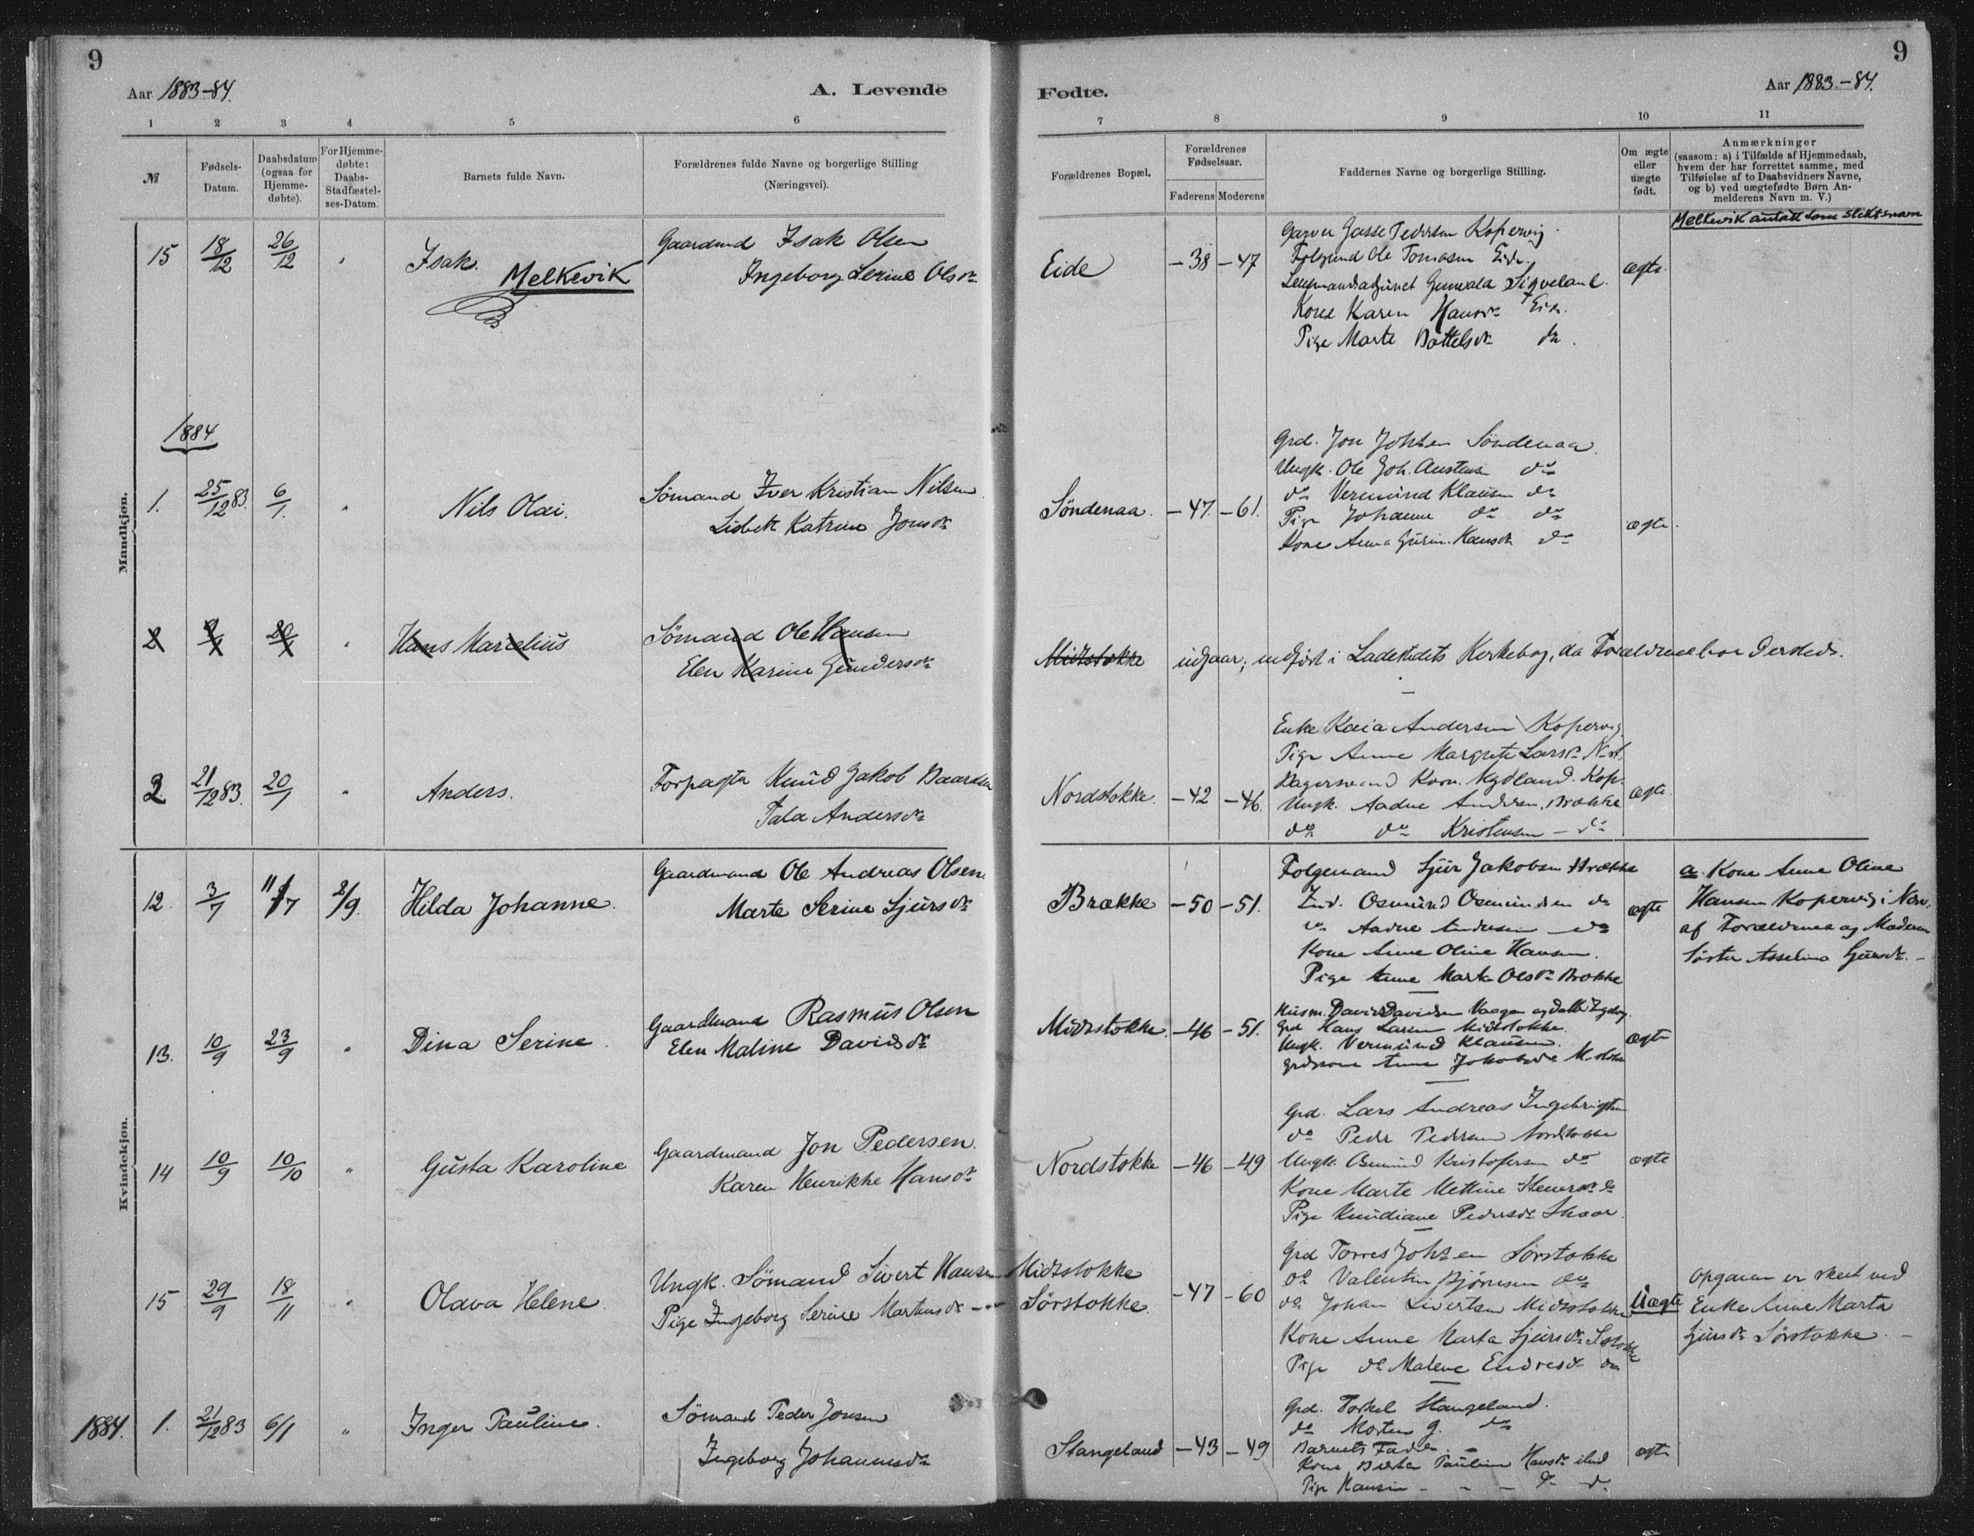 9
Aar 1883-84.
A. Levende
Fødte.
Aar 1883.-84.
9
1 2 3 4 5 6 7 8 9 10 11
№
Fødsels-
Datum.
Daabsdatum
(ogsaa for
Hjemme-
døbte).
For Hjemme-
døbte:
Daabs-
Stadfæstel-
ses-Datum.
Barnets fulde Navn.
Forældrenes fulde Navne og borgerlige Stilling
(Næringsvei).
Forældrenes Bopæl.
Forældrenes
Fødselsaar.
Faderens Moderens
Faddernes Navne og borgerlige Stilling.
Om ægte
eller
uægte
født.
Anmærkninger
(saasom: a) i Tilfælde af Hjemmedaab,
hvem der har forrettet samme, med
Tilføielse af to Daabsvidners Navne,
og b) ved uægtefødte Børn An-
melderens Navn m. V.)
Mandkjøn.
15 18/12 26/12 "
Isak.
Melkevik
Gaardmd Isak Olsen
Ingeborg Serine Olsdr
Eide -38 -47
Garver Gasse Pedersen Kopervig.
Folgemd Ole Tomasen Eide.
Lensmandsadjunct Gunvald Sigveland.
Kone Karen Hansdr Eide.
Pige Marte Bottelsdr do.
ægte
Melkevik antatt som slektsnavn
1884
1. 25/12 83. 6/1. "
Nils Olai.
Sömand Iver Kristian Nilsen
Lisbeth Katrine Jonsdr
Søndenaa. -47. -61.
Grd. Jon Johsen Søndenaa.
Ungk. Ole Joh. Austensen do
do Vermund Klausen do
Pige Johanne do do
Kone Anna Gurine Hansdr do
ægte.
2 20/1 "
Hans Marcelius
Sömand Ole Hansen
Elen Karine Gundersdr
Midtstokke udgaar; indført i Ladestedets Kirkebog, da Forældrene bor dersteds.
2. 21/12 83. 20/1 "
Anders.
Forpagter Knud Jakob Baardsen
Tala Andersdr
Nordstokke. -42 -46.
Enke Kaia Andersen Kopervig
Pige Anne Margrete Larsdr Nst.
Dagersvand Korn. Nydland. Kop.
Ungk. Aadne Andersen, Brække
do do Kristensen - do
ægte.
Kvindekjøn.
12 3/7 11/7 2/9.
Hilda Johanne.
Gaardmand Ole Andreas Olsen.
Marte Serine Sjursdr
Brække -50 -51.
Folgemand Sjur Jakobsen Brække
Ind. Osmund Osmundsen do
do Aadne Andersen do
Kone Anne Oline Hansen.
Pige Anne Marta Olsdr Brække
ægte
a. Kone Anne Oline
Hansen Kopervig i Nærv.
af Forældrene og Moderens
Søster Asseline Sjursdr. -
13. 10/9 23/9 "
Dina Serine.
Gaardmand Rasmus Olsen
Elen Maline Davidsdr
Midtstokke. -46 -51.
Husm. David Davidsen Vaage og Datt. Ingebg.
Grd Hans Larsen Midtstokke.
Ungk. Vermund Klausen.
Grdskone Anne Jakobsdr M. stokke
ægte
14 10/9 10/10 "
Gusta Karoline
Gaardmand Jon Pedersen.
Karen Henrikke Hansdr
Nordstokke -46 -49
Grd. Lars Andreas Ingebrigtsen
do Peder Pedersen Nordstokke
Ungk. Osmund Kristofersen do
Kone Marte Mettine Stenersdr do
Pige Knudiane Pedersdr Skaar.
ægte
15 29/9 18/11 "
Olava Helene.
Ungk. Sömand Sivert Hansen Midtstokke
Pige Ingeborg Serine Markusdr - Sørstokke. -47 -60
Grd Torres Johsen Sørstokke
do Valentin Bjørnsen do
do Johan Sivertsen Midtstokke
Kone Anne Marta Sjursdr S. stokke
Pige do Malene Endresdr do
Uægte
Opgaven er skeet ved
Enke Anne Marta
Sjursdr Sørstokke. -
1884. 1. 21/12 83 6/1 "
Inger Pauline.
Sömand Peder Jonsen
Ingeborg Johannesdr
Stangeland -43 -49
Grd. Torkel Stangeland.
do Morten G. do
Barnets Fader. -
Kone Berta Pauline Hansdr ibid
Pige Hansine - - - do do
ægte